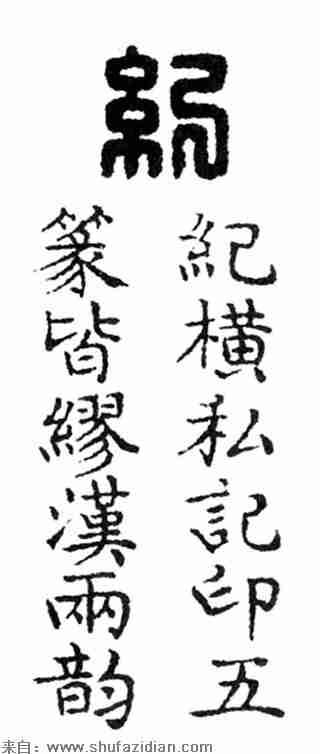 紀
紀橫私記印五
篆皆繆漢兩韵
来自：www.shufazidian.com